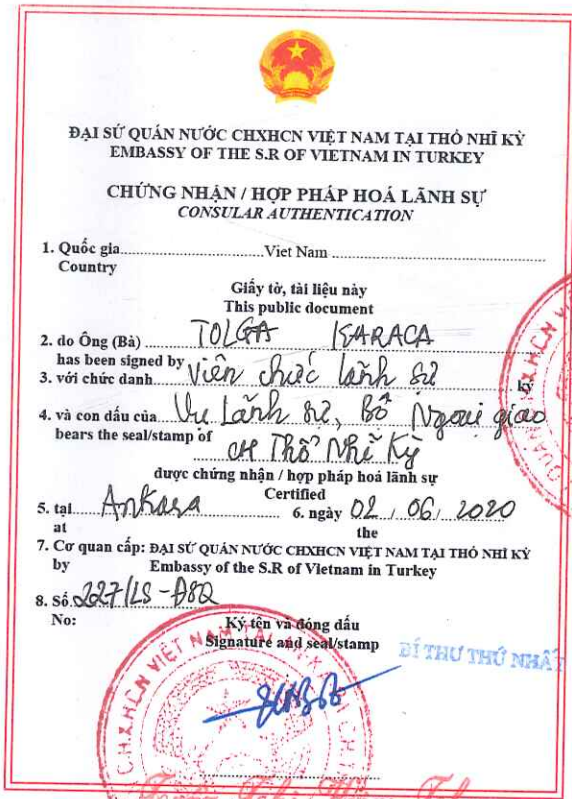 ĐẠI SỨ QUÁN NƯỚC CHXHCN VIỆT NAM TẠI THỔ NHĨ KỲ
EMBASSY OF THE S.R OF VIETNAM IN TURKEY
CHỨNG NHẬN / HỢP PHÁP HOÁ LÃNH SỰ
CONSULAR AUTHENTICATION
1. Quốc gia Viet Nam
Country
Giấy tờ, tài liệu này
This public document
2. do Ông (Bà) TOLGA KARACA
has been signed by ký
3. với chức danh Viên chức lãnh sự
4. và con dấu của Vụ Lãnh sự, Bộ Ngoại giao
bears the seal/stamp of
CH Thổ Nhĩ Kỳ
được chứng nhận / hợp pháp hoá lãnh sự
Certified
5. tại Ankara 6. ngày 02, 06, 2020
at the
7. Cơ quan cấp: ĐẠI SỨ QUÁN NƯỚC CHXHCN VIỆT NAM TẠI THỔ NHĨ KỲ
by Embassy of the S.R of Vietnam in Turkey
8. Số 227/LS-ĐSQ
No:
Ký tên và đóng dấu
Signature and seal/stamp
BÍ THƯ THỨ NHẤT